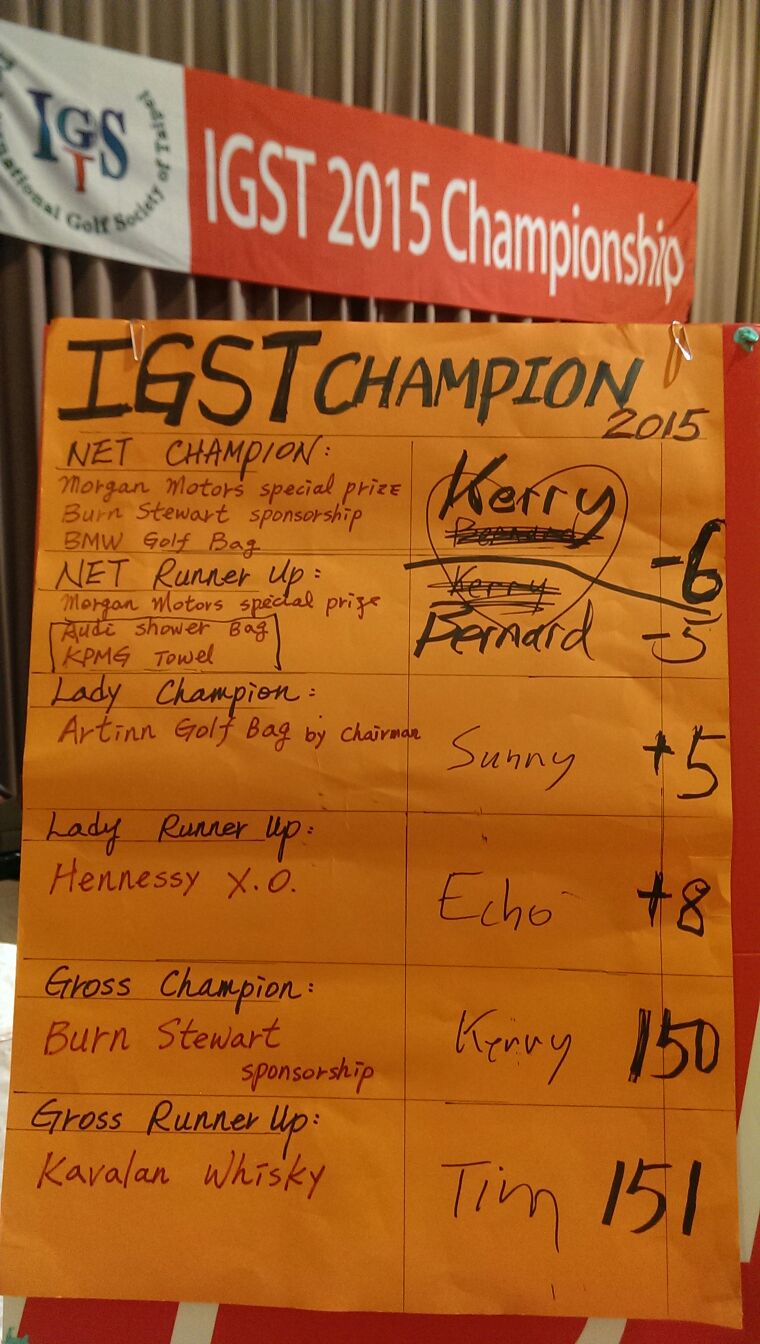 IGST
International Golf Society of Taipei
IGST 2015 Championship
IGST CHAMPION
2015
NET CHAMPION:
Morgan Motors special prize
Burn Stewart sponsorship
BMW Golf Bag
Kerry
Bernard
-6
NET Runner Up:
Morgan Motors special prize
Audi shower Bag
KPMG Towel
Kerry
Bernard -5
Lady Champion:
Artinn Golf Bag by Chairman
Sunny +5
Lady Runner Up:
Hennessy X.O.
Echo +8
Gross Champion:
Burn Stewart
sponsorship
Kerry 150
Gross Runner Up:
Kavalan Whisky
Tim 151